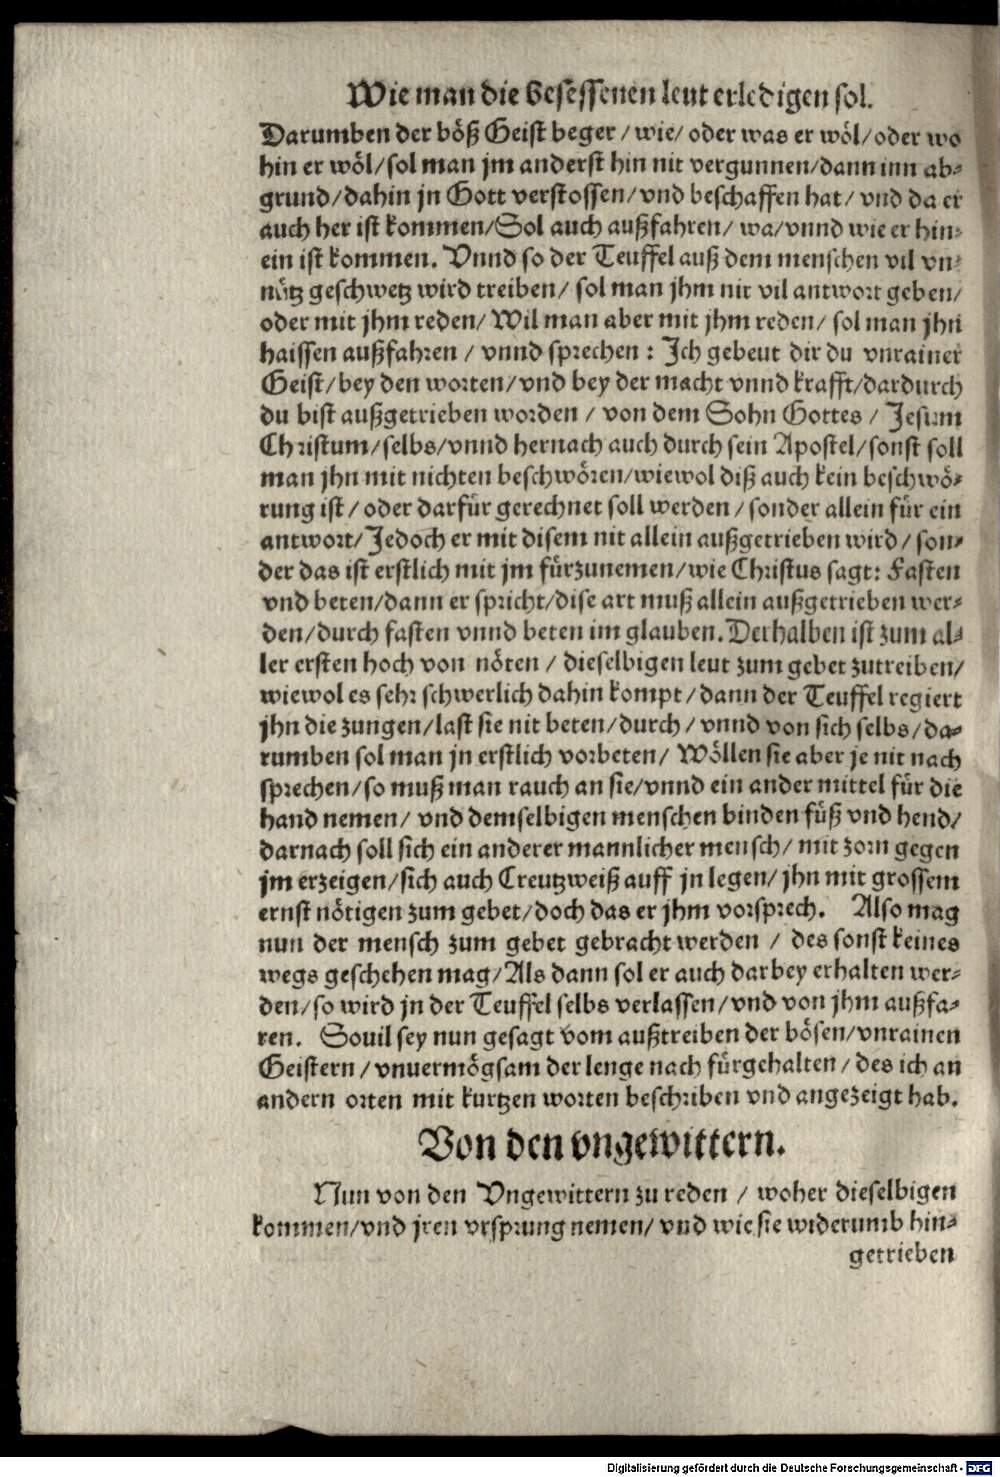 Wie man die besessenen leut erledigen sol.
Darumben der böß Geist beger / wie / oder was er wöl / oder wo
hin er wöl / sol man jm anderst hin nit vergunnen / dann inn ab-
grund / dahin jn Gott verstossen / vnd beschaffen hat / vnd da er
auch her ist kommen / Sol auch außfahren / wa / vnnd wie er hin-
ein ist kommen. Vnnd so der Teuffel auß dem menschen vil vn-
nütz geschwetz wird treiben / sol man jhm nit vil antwort geben /
oder mit jhm reden / Wil man aber mit jhm reden / sol man jhn
haissen außfahren / vnnd sprechen : Ich gebeut dir du vnrainer
Geist / bey den worten / vnd bey der macht vnnd krafft / dardurch
du bist außgetrieben worden / von dem Sohn Gottes / Jesum
Christum / selbs / vnnd hernach auch durch sein Apostel / sonst soll
man jhn mit nichten beschwören / wiewol diß auch kein beschwö-
rung ist / oder darfür gerechnet soll werden / sonder allein für ein
antwort / Jedoch er mit disem nit allein außgetrieben wird / son-
der das ist erstlich mit jm fürzunemen / wie Christus sagt: Fasten
vnd beten / dann er spricht / dise art muß allein außgetrieben wer-
den / durch fasten vnnd beten im glauben. Derhalben ist zum al-
ler ersten hoch von nöten / dieselbigen leut zum gebet zutreiben /
wiewol es sehr schwerlich dahin kompt / dann der Teuffel regiert
jhn die zungen / last sie nit beten / durch / vnnd von sich selbs / da-
rumben sol man jn erstlich vorbeten / Wöllen sie aber je nit nach
sprechen / so muß man rauch an sie / vnnd ein ander mittel für die
hand nemen / vnd demselbigen menschen binden füß vnd hend /
darnach soll sich ein anderer mannlicher mensch / mit zorn gegen
jm erzeigen / sich auch Creutzweiß auff jn legen / jhn mit grossem
ernst nötigen zum gebet / doch das er jhm vorsprech. Also mag
nun der mensch zum gebet gebracht werden / des sonst keines
wegs geschehen mag / Als dann sol er auch darbey erhalten wer-
den / so wird jn der Teuffel selbs verlassen / vnd von jhm außfa-
ren. Souil sey nun gesagt vom außtreiben der bösen / vnrainen
Geistern / vnuermögsam der lenge nach fürgehalten / des ich an
andern orten mit kurtzen worten beschriben vnd angezeigt hab.
Von den vngewittern.
Nun von den Vngewittern zu reden / woher dieselbigen
kommen / vnd jren vrsprung nemen / vnd wie sie widerumb hin-
getrieben
Digitalisierung gefördert durch die Deutsche Forschungsgemeinschaft - DFG